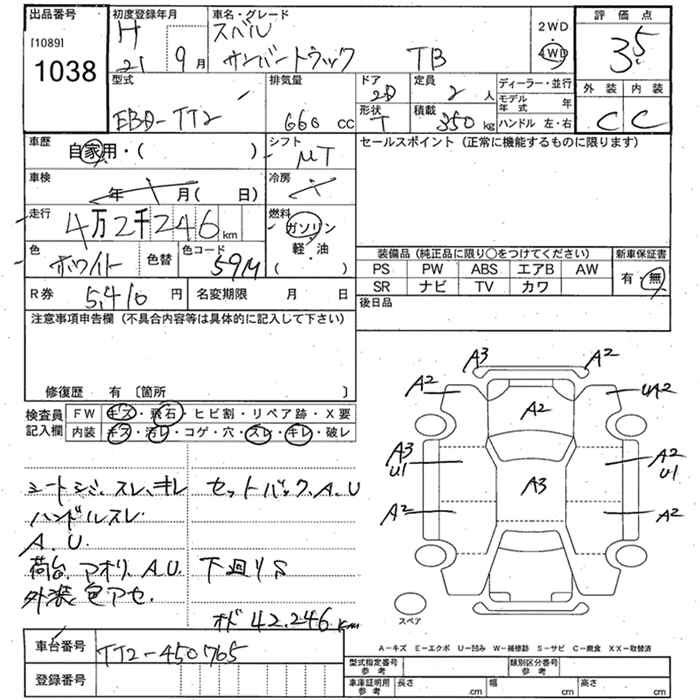 出品番号
[1089]
1038
初度登録年月
H
21 9月
車名・グレード
スバル
サンバートラック TB
2WD
4WD
評価点
3.5
外装 内装
C C
型式
EBD-TT2
排気量
660 cc
ドア
2D
形状
T
定員
2 人
積載
350 kg
ディーラー・並行
モデル年式 年
ハンドル 左・右
車歴
自家用・( )
シフト
MT
セールスポイント(正常に機能するものに限ります)
車検
年 月( 日)
冷房
走行
4万2千246km
燃料
ガソリン
軽・油
( )
色
ホワイト
色替
色コード
59M
装備品(純正品に限り○をつけてください)
PS PW ABS エアB AW
SR ナビ TV カワ
新車保証書
有・無
R券 5,410円
名変期限 月 日
後日品
注意事項申告欄(不具合内容等は具体的に記入して下さい)
修復歴 有 〔箇所 〕
検査員記入欄
FW キズ・飛石・ヒビ割・リペア跡・X要
内装 キズ・汚レ・コゲ・穴・スレ・キレ・破レ
シートシミ、スレ、キレ
ハンドルスレ
A.U.
荷台、アオリ、A.U.
外装色アセ.
セットバック、A.U
下廻りS
オド42.246km
A3 A2
A2 A2 UA2
A3 U1 A3 A2 U1
A2 A2
スペア
A-キズ E-エクボ U-凹み W-補修跡 S-サビ C-腐食 XX-取替済
車台番号
TT2-450765
登録番号
型式指定番号 参考
類別区分番号 参考
車庫証明用 参考
長さ cm 幅 cm 高さ cm